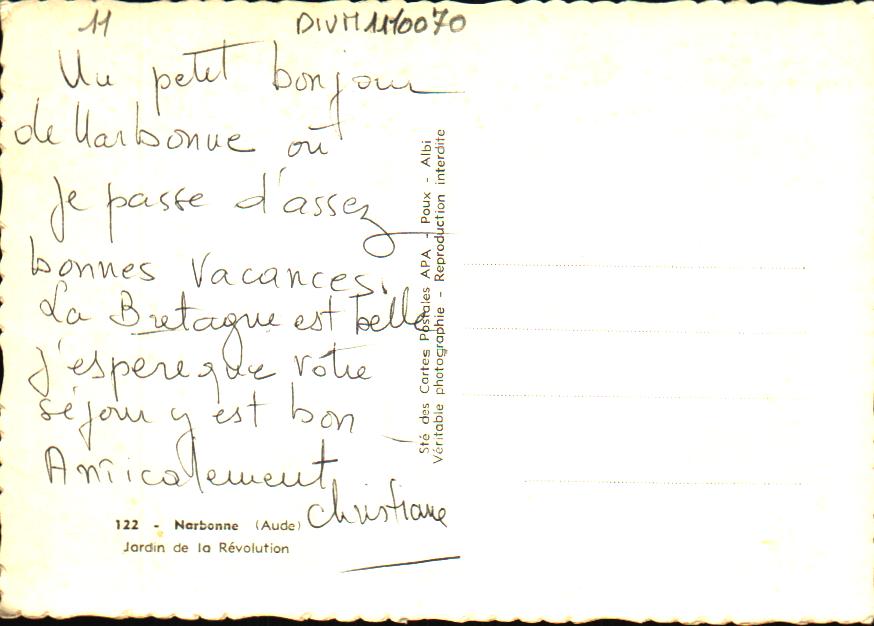 11
DIVM1110070
Un petit bonjour
de Narbonne où
je passe d'assez
bonnes vacances.
La Bretagne est belle
j'espere que votre
séjour y est bon
Amicalement
Christiane
122 - Narbonne (Aude)
Jardin de la Révolution
Sté des Cartes Postales APA - Poux - Albi
Véritable photographie - Reproduction interdite